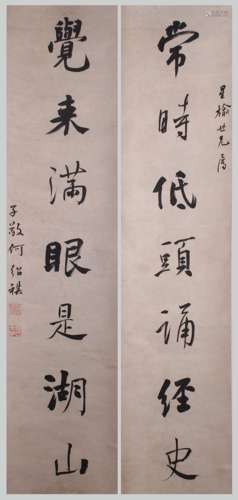 星榆世兄属
常時低頭誦經史
覺来滿眼是湖山
子敬何紹祺